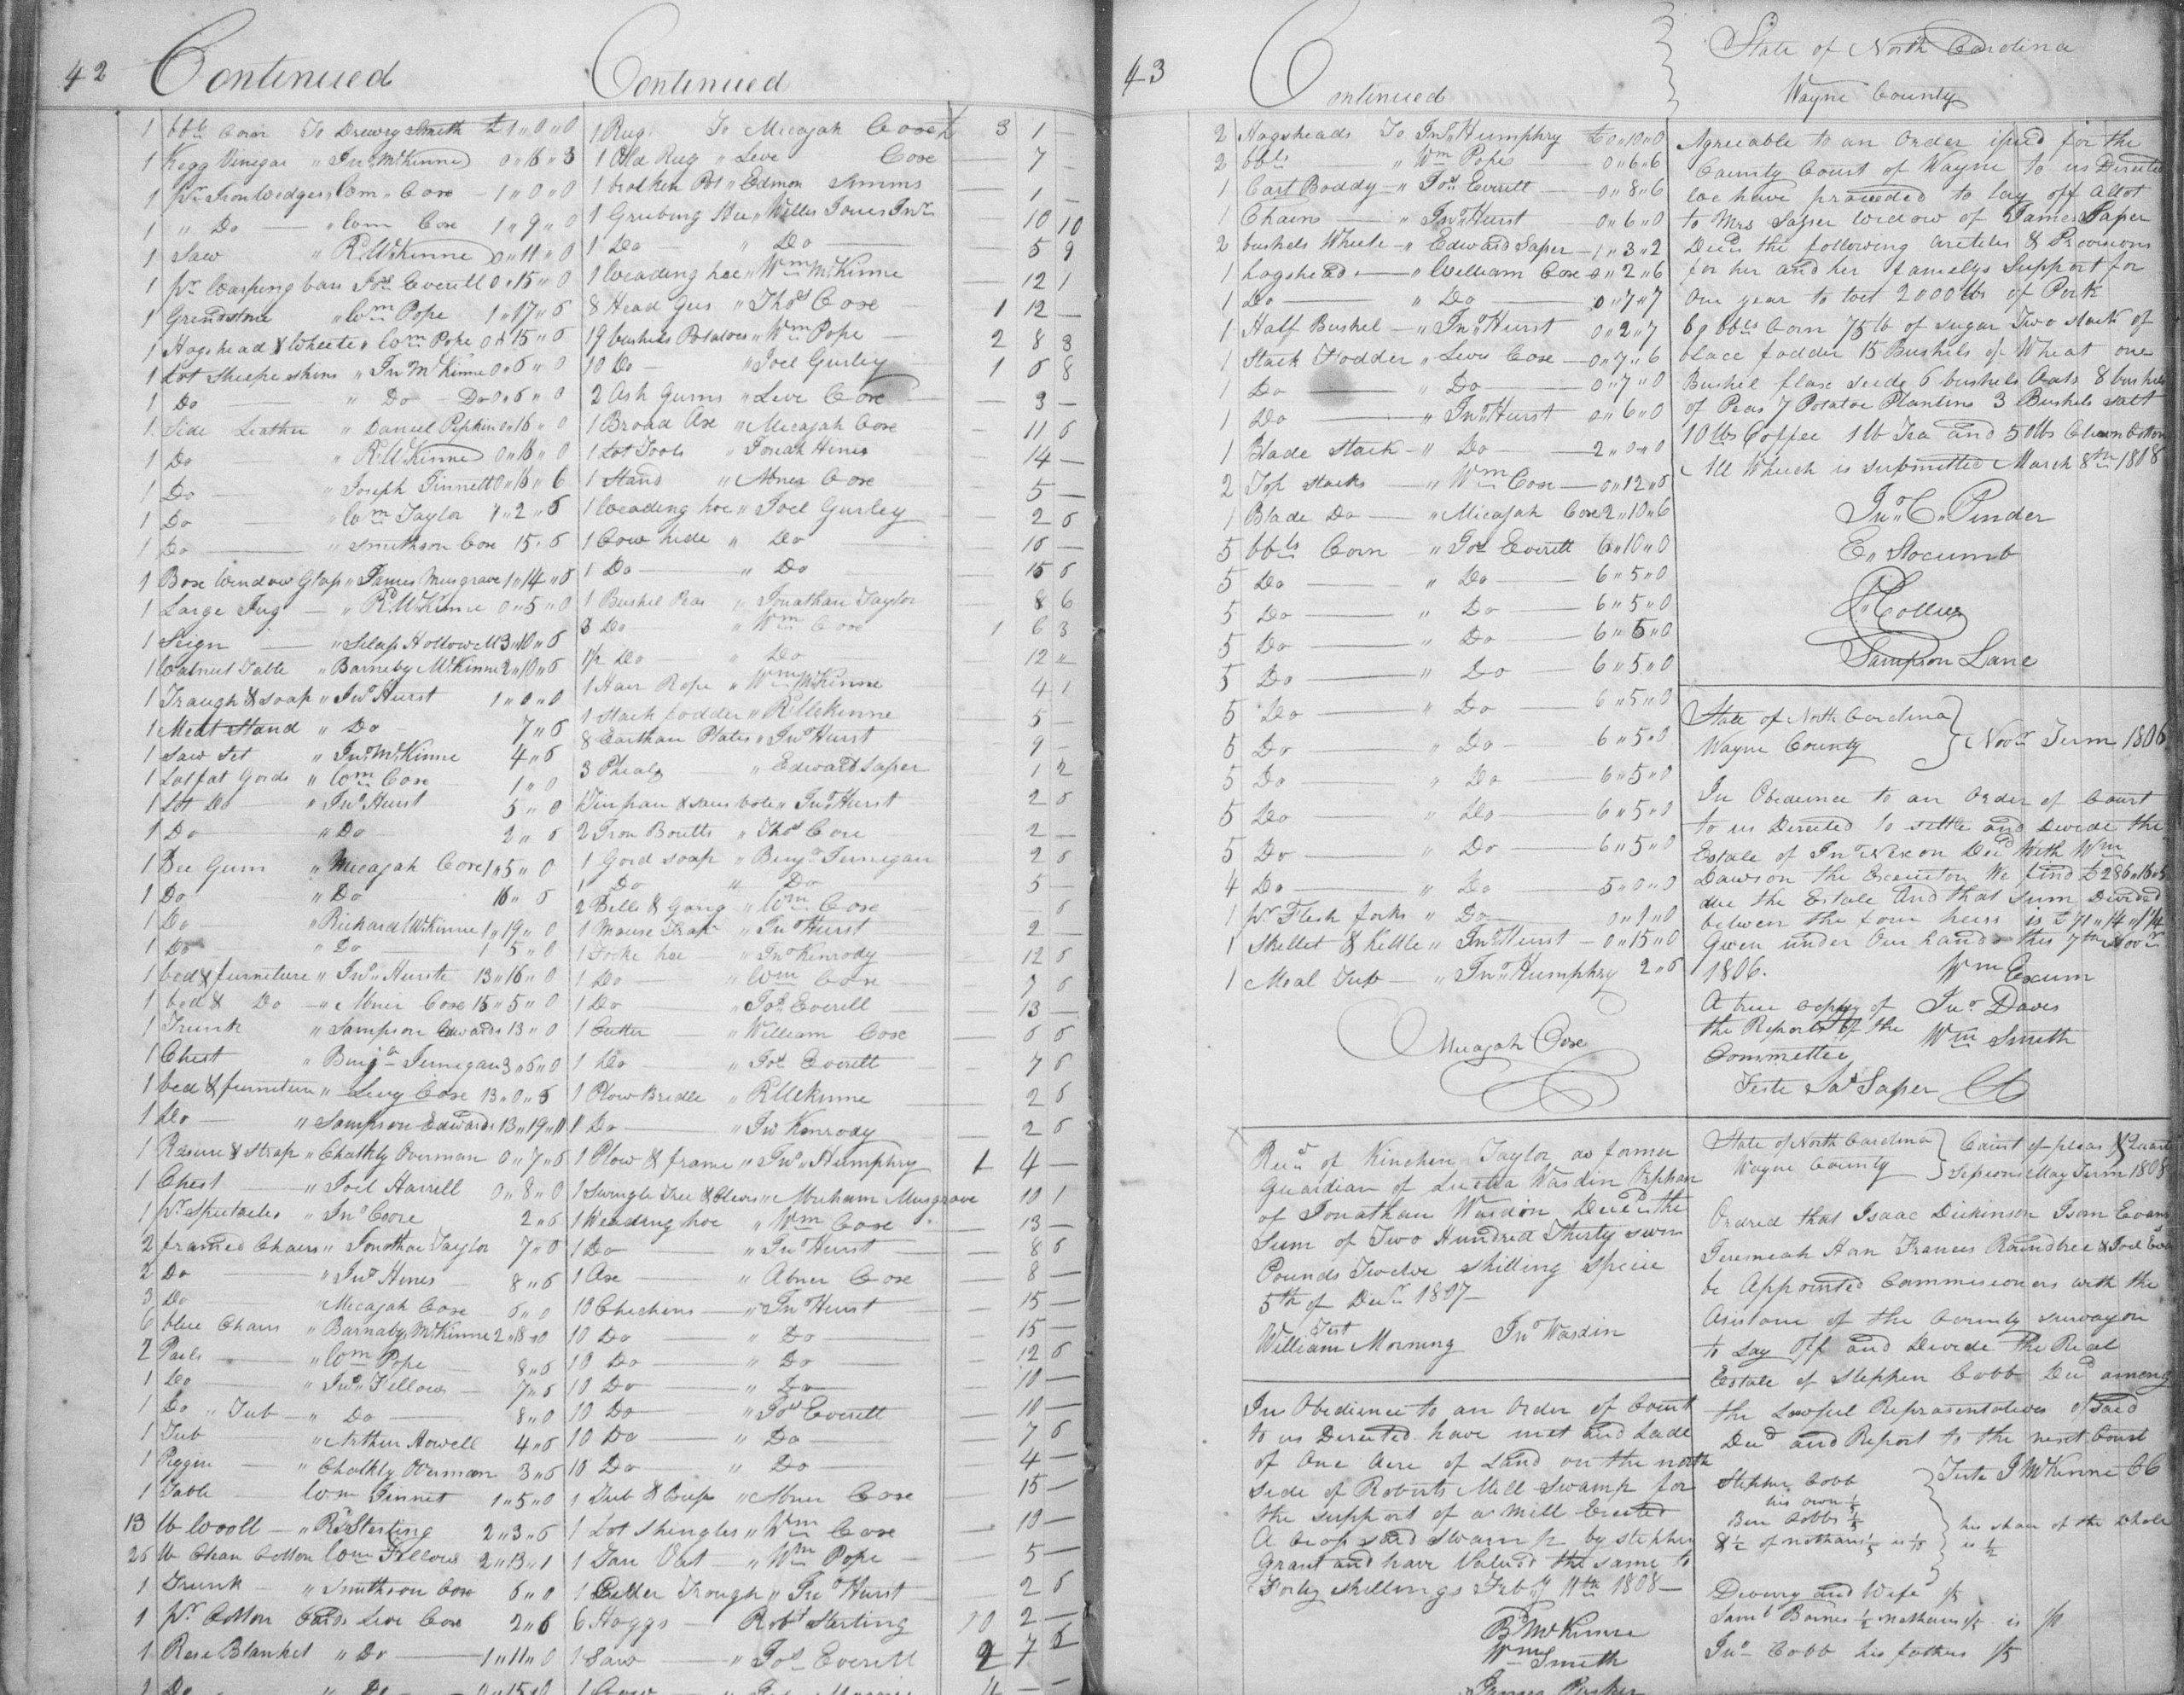 42
Continued
1 bbl Corn To Drewry Smith £1"0"0
1 Kegg Vinegar " Jno McKinne 0"16"3
1 pr Iron wedges Wm Cox 1"0"0
1 " Do " Wm Cox 1"9"0
1 Saw " R McKinne 0"11"0
1 pr Warping bars Jos Everitt 0"15"0
1 Grindstone " Wm Pope 1"17"6
1 Hogshead & Wheete " Wm Pope 0"15"6
1 Lot Sheepe skins " Jn McKinne 0"6"0
1 Do " Do Do 0"6"0
1 Side Leather " Daniel Pipkin 0"16"0
1 Do " R McKinne 0"16"0
1 Do " Joseph Finnett 0"16"6
1 Do " Wm Taylor 1"2"6
1 Do " Smithson Cox 15"6
1 Box Window Glass " James Musgrave 1"14"6
1 Large Jug " R McKinne 0"5"0
1 Seign " Silas Hollowell 3"10"6
1 Walnut Table " Barneby McKinne 2"10"6
1 Traugh & soap " Jno Hurst 1"0"0
1 Meat Stand " Do 7"6
1 Saw Set " Jno McKinne 4"6
1 Lot fat Gords " Wm Cox 1"0
1 Lot Do " Jno Hurst 5"0
1 Do " Do 2"6
1 Bee Gum " Micajah Cox 1"5"0
1 Do " Do 16"6
1 Do " Richard McKinne 1"19"0
1 Do " Do 1"5"0
1 bed & furneture " Jno Hurste 13"16"0
1 bed & Do " Abner Cox 15"5"0
1 Trunk " Sampson Edwards 13"0
1 Chest " Benja Jernegan 3"6"0
1 bed & furneture " Levy Cox 13"0"6
1 Do " Sampson Edwards 13"19"11
1 Rasure & Strap " Chalkly Overman 0"7"6
1 Chest " Joel Harrell 0"8"0
1 pr Spectacles " Jno Coore 2"6
2 framed Chairs " Jonathan Taylor 7"0
2 Do " Jno Hines 8"6
3 Do " Micajah Cox 6"0
6 blue Chairs " Barnaby McKinne 2"18"0
2 Pails " Wm Pope 8"6
1 Do " Jno Fellows 7"6
1 Do " Tub " Do 8"0
1 Tub " Arthur Howell 4"6
1 Piggin " Chalkly Overman 3"6
1 Table Wm Finnet 1"5"0
13 lb Wooll " Rd Sterling 2"3"6
26 lb Clean Cotton Wm Fellows 2"13"1
1 Trunk " Smithson Cox 6"0
1 pr Cotton Cards Levi Cox 2"6
1 Rose Blanket " Do 1"11"0
1 Do
Continued
1 Rug To Micajah Cox £ 3 1 —
1 Old Rug " Levi Cox — 7 —
1 broken Pot " Edmon Simms — 1 —
1 Grubing Hoe " Willis Jones Jnr — 10 10
1 Do " Do — 5 9
1 Weading hoe " Wm McKinne — 12 1
8 Head Gees " Thos Cox 1 12 —
19 bushels Potatoes " Wm Pope 2 8 3
10 Do " Joel Gurley 1 6 8
2 Ash Gums " Levi Cox — 3 —
1 Broad Axe " Micajah Cox — 11 6
1 Lot Tools " Josiah Hines — 14 —
1 Stand " Abner Cox — 5 —
1 Weading hoe " Joel Gurley — 2 6
1 Cow hide " Do — 16 —
1 Do " Do — 15 6
1 Bushel Peas " Jonathan Taylor — 8 6
3 Do " Wm Cox 1 6 3
1½ Do " Do 12 "
1 Hair Rope " Wm McKinne 4 1
1 Stack fodder " R McKinne — 5 —
8 Earthan Plates " Jno Hurst — 9 —
3 Phials " Edward Sasser — 1 2
1 Tin pan & " Jno Hurst — 2 6
2 Iron Boults " Thos Cox — 2 —
1 Gord soap " Benja Jernigan — 2 6
1 Do " Do — 5 —
2 Bells & Gang " Wm Cox — 6
1 Mouse Trap " Jno Hurst — 2 —
1 Focke hoe " Jno Kenrody — 12 6
1 Do " Wm Cox — 7 6
1 Do " Jos Everitt — 13 —
1 Cutter " William Cox — 6 6
1 Do " Jos Everitt — 7 6
1 Plow Bridle " R McKinne — 2 6
1 Do " Jno Kenrody — 2 6
1 Plow & frame " Jno Humphry 1 4 —
1 Swingle Tree & Clevis " Abraham Musgrave 10 1
1 Weading hoe " Wm Cox — 13 —
1 Do " Jno Hurst — 8 6
1 Axe " Abner Cox — 8 —
10 Chickins " Jno Hurst — 15 —
10 Do " Do — 15 —
10 Do " Do — 12 6
10 Do " Do — 10 —
10 Do " Jos Everett — 10 —
10 Do " Do — 7 6
10 Do " Do — 4 —
1 Tub & Beef " Abner Cox — 15 —
1 Lot Shingles " Wm Cox — 10 —
1 Tan Vat " Wm Pope — 5 —
1 Trough " Jno Hurst — 2 6
6 Hoggs Robt Sterling 10 2 —
1 Saw " Jos Everitt 2 7 6
43
Continued
2 Hogsheads To Jno Humphry £0"10"0
2 bbls " Wm Pope 0"6"6
1 Cart Boddy " Jos Everitt 0"8"6
1 Chain " Jno Hurst 0"6"0
2 bushels Wheete " Edward Saper 1"3"2
1 hogshead " William Cox 0"2"6
1 Do " Do 0"7"7
1 Half Bushel " Jno Hurst 0"2"7
1 Stack Fodder " Levi Cox 0"7"6
1 Do " Do 0"7"0
1 Do " Jno Hurst 0"6"0
1 Blade Stack " Do 2"0"0
2 Top stacks " Wm Cox 0"12"6
1 Blade Do " Micajah Cox 2"10"6
5 bbls Corn " Jos Everitt 6"10"0
5 Do " Do 6"5"0
5 Do " Do 6"5"0
5 Do " Do 6"5"0
5 Do " Do 6"5"0
5 Do " Do 6"5"0
5 Do " Do 6"5"0
5 Do " Do 6"5"0
5 Do " Do 6"5"0
5 Do " Do 6"5"0
4 Do " Do 5"0"0
1 pr Flesh forks " Do 0"1"0
1 Skillet & Kettle " Jno Hurst 0"15"0
1 Meal Tub " Jno Humphry 2"6
Micajah Cox
Recd of Kinchen Taylor as former
Guardian of Wasdin Orphan
of Jonathan Wasdin Decd the
Sum of Two Hundred Thirty seven
Pounds Twelve Shilling Specie
5th of Decr 1807
Test
William Morning Jno Wasdin
In Obedience to an Order of Court
to us Directed have met and Laid
of One Acre of Land on the north
side of Roberts Mill Swamp for
the support of a Mill Erected
A cross said Swamp by Stephen
Grant and have Valued the same to
Forty shillings Feby 11th 1808
B McKinne
Wm Smith
James Parker
State of North Carolina
Wayne County
Agreeable to an Order issued for the
County Court of Wayne to us Directed
We have proceeded to lay off Allot
to Mrs Saper widow of James Saper
Decd the following Articles & Provisions
for her and her famelys Support for
One year to wit 2000 lbs of Pork
60 bbls Corn 75 lb of sugar Two stack of
blace fodder 15 Bushels of Wheat one
Bushel flax seede 6 bushels Oats 8 bushels
of Peas 7 Potatoe Planting 3 Bushels Salt
10 lbs Coffee 1 lb Tea and 50 lbs Clean Cotton
All Which is submitted March 8th 1808
Jno C. Pender
E. Slocumb
Collier
Sampson Lane
State of North Carolina
Wayne County } Novr Term 1806
In Obedience to an Order of Court
to us Directed to settle and Devide the
Estate of Jno Nixon Decd With Wm
Dawson the Executor We find £286"16"5
due the Estate And that sum Devided
between the four heirs is £71"14"1¼
Given under Our hands this 7th Novr
1806. Wm Exum
A true copy of Jno Daves
the Reports of the Wm Smith
Committee
Teste Saper CC
State of North Carolina
Wayne County } Court of pleas & Quarter
Sepeons May Term 1808
Ordred that Isaac Dickinson Isom Evans
Jeremiah Ham Frances Roundtree & Joel
be Appointed Commissioners with the
Asistane of the County survayor
to Lay Off and Devide the Real
Estate of Stephen Cobb Decd among
the Lawful Reprasentatives of said
Decd and Report to the next Court
Teste P McKinne CC
Stephen Cobb
his own ⅕
Ben Cobbs ⅕
& ½ of nathans ⅕ is 1/10
his share of the whole
is ½
Drewry and Wife ⅕
Saml Barnes ½ Nathans ⅕ is 1/10
Jno Cobb his fathers ⅕